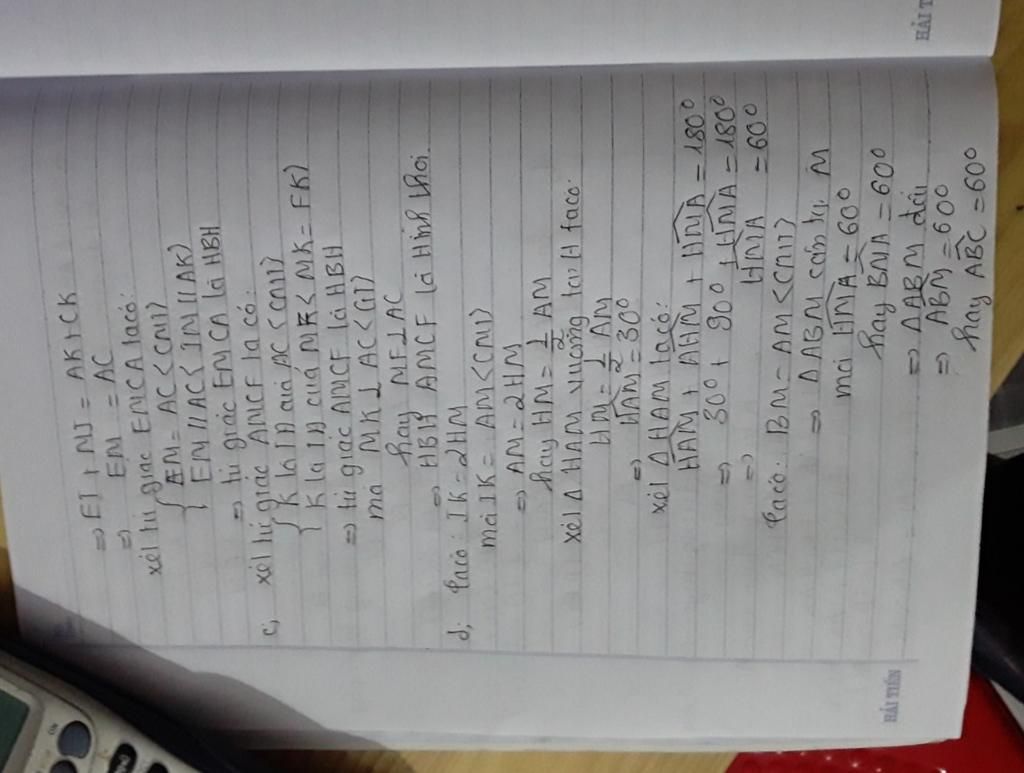 => EI + MI = AK + CK
=> EM = AC
xét tứ giác EMCA ta có:
{ EM = AC < cm1>
{ EM // AC < IM // AK>
=> tứ giác EMCA là HBH
c, xét tứ giác AMCF ta có:
{ K là TĐ của AC <cm1>
{ K là TĐ của MF < MK = FK>
=> tứ giác AMCF là HBH
mà MK ⊥ AC <GT>
hay MF ⊥ AC
=> HBH AMCF là Hình thoi.
d, Ta có: IK = 2HM
mà IK = AM <cm1>
=> AM = 2HM
hay HM = 1/2 AM
xét Δ HAM vuông tại H ta có:
HM = 1/2 AM
=> HAM = 30°
xét Δ HAM ta có:
HAM + AHM + HMA = 180°
=> 30° + 90° + HMA = 180°
=> HMA = 60°
Ta có: BM = AM <cm1>
=> Δ ABM cân tại M
mà HMA = 60°
hay BMA = 60°
=> Δ ABM đều
=> ABM = 60°
hay ABC = 60°
HẢI TIẾN
HẢI T